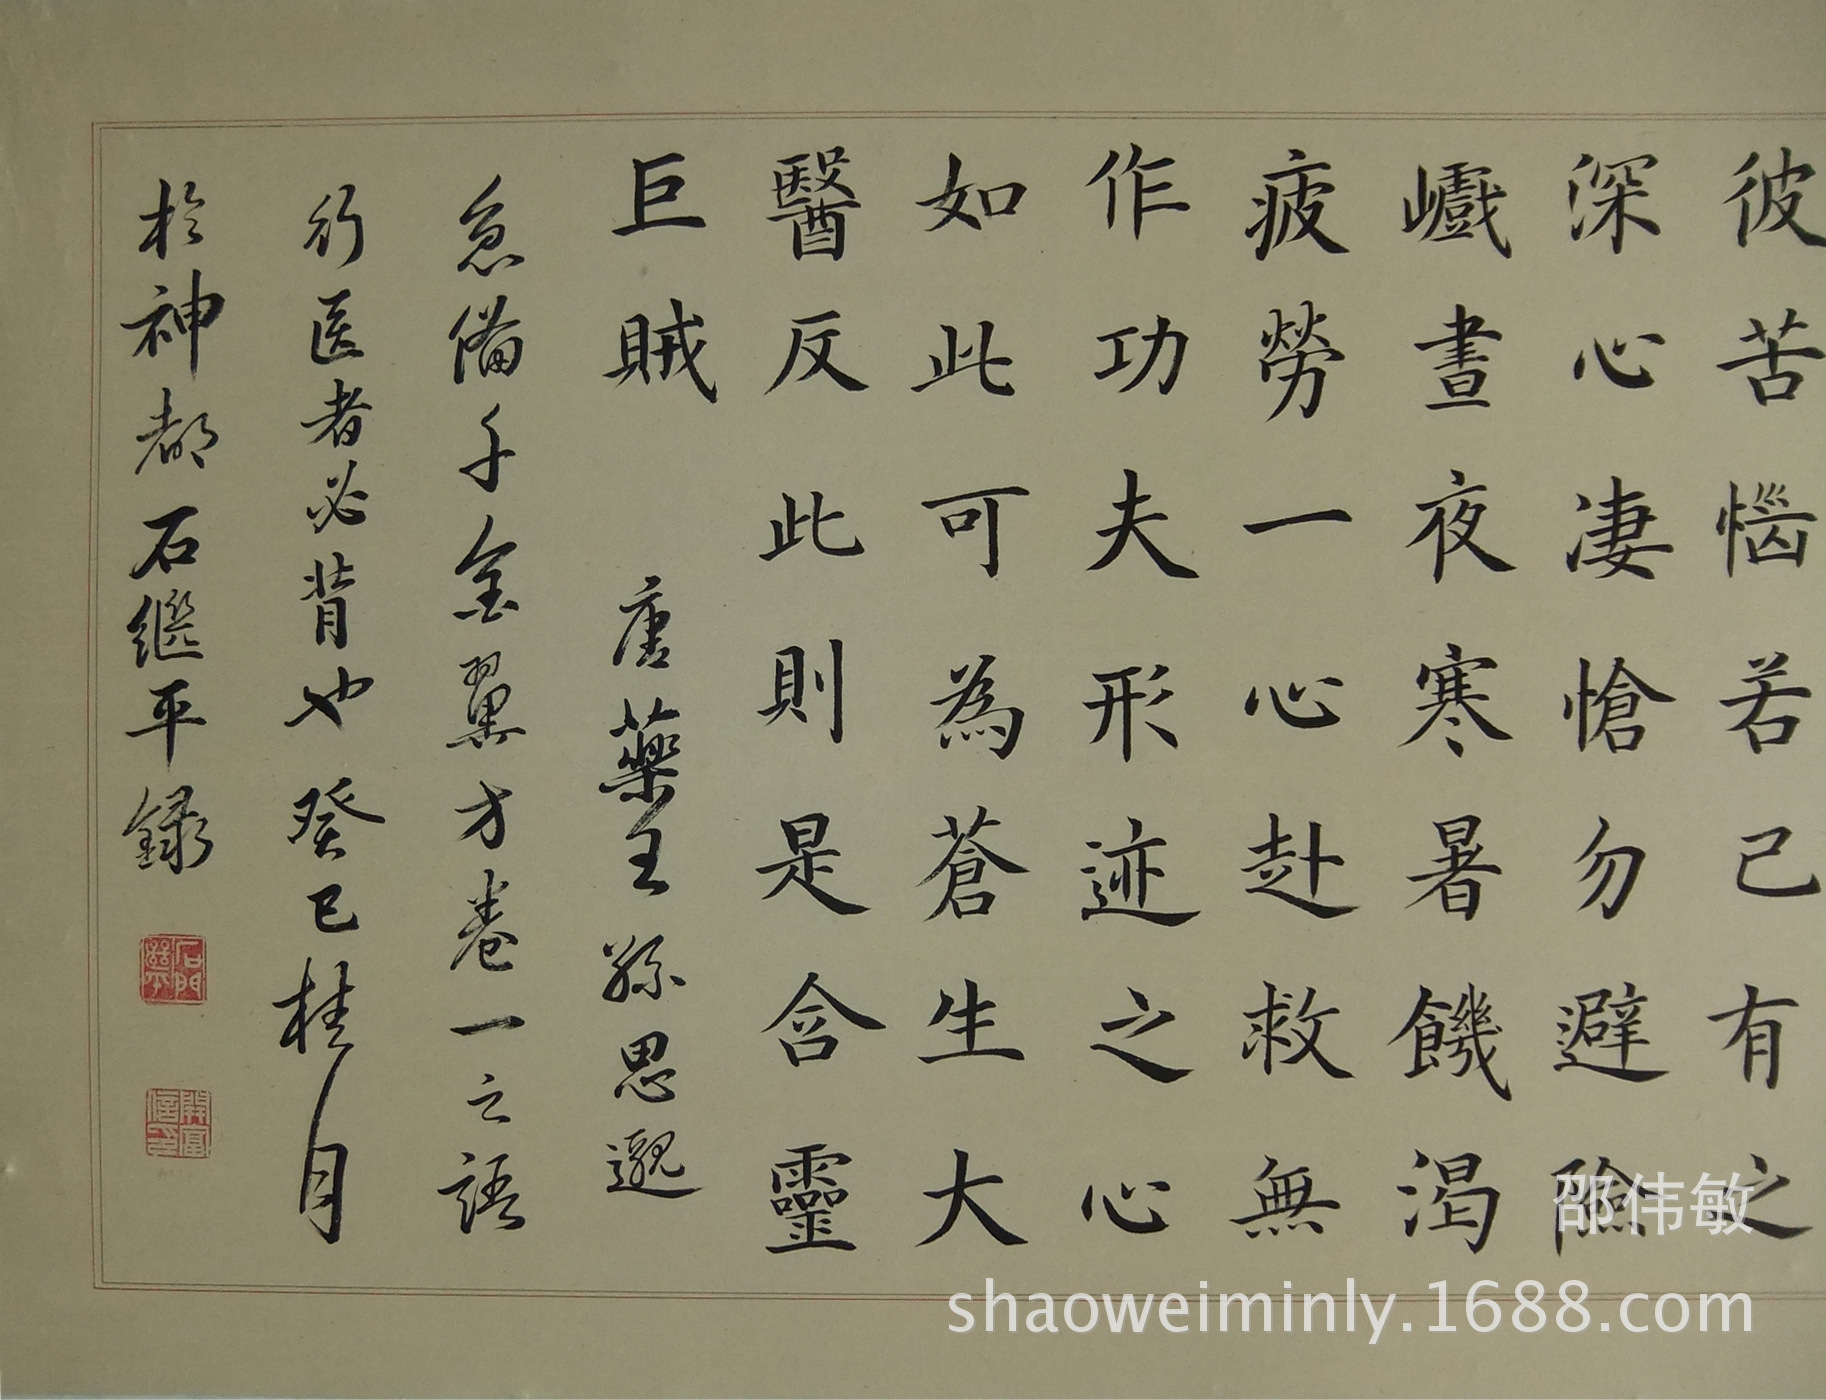 彼苦惱若己有之
深心凄愴勿避險
巇晝夜寒暑饑渴
疲勞一心赴救無
作功夫形迹之心
如此可為蒼生大
醫反此則是含靈
巨賊
唐藥王孫思邈
急備千金翼方卷一之語
行医者必背也癸巳桂月
於神都石繼平録
邵伟敏
shaoweiminly.1688.com